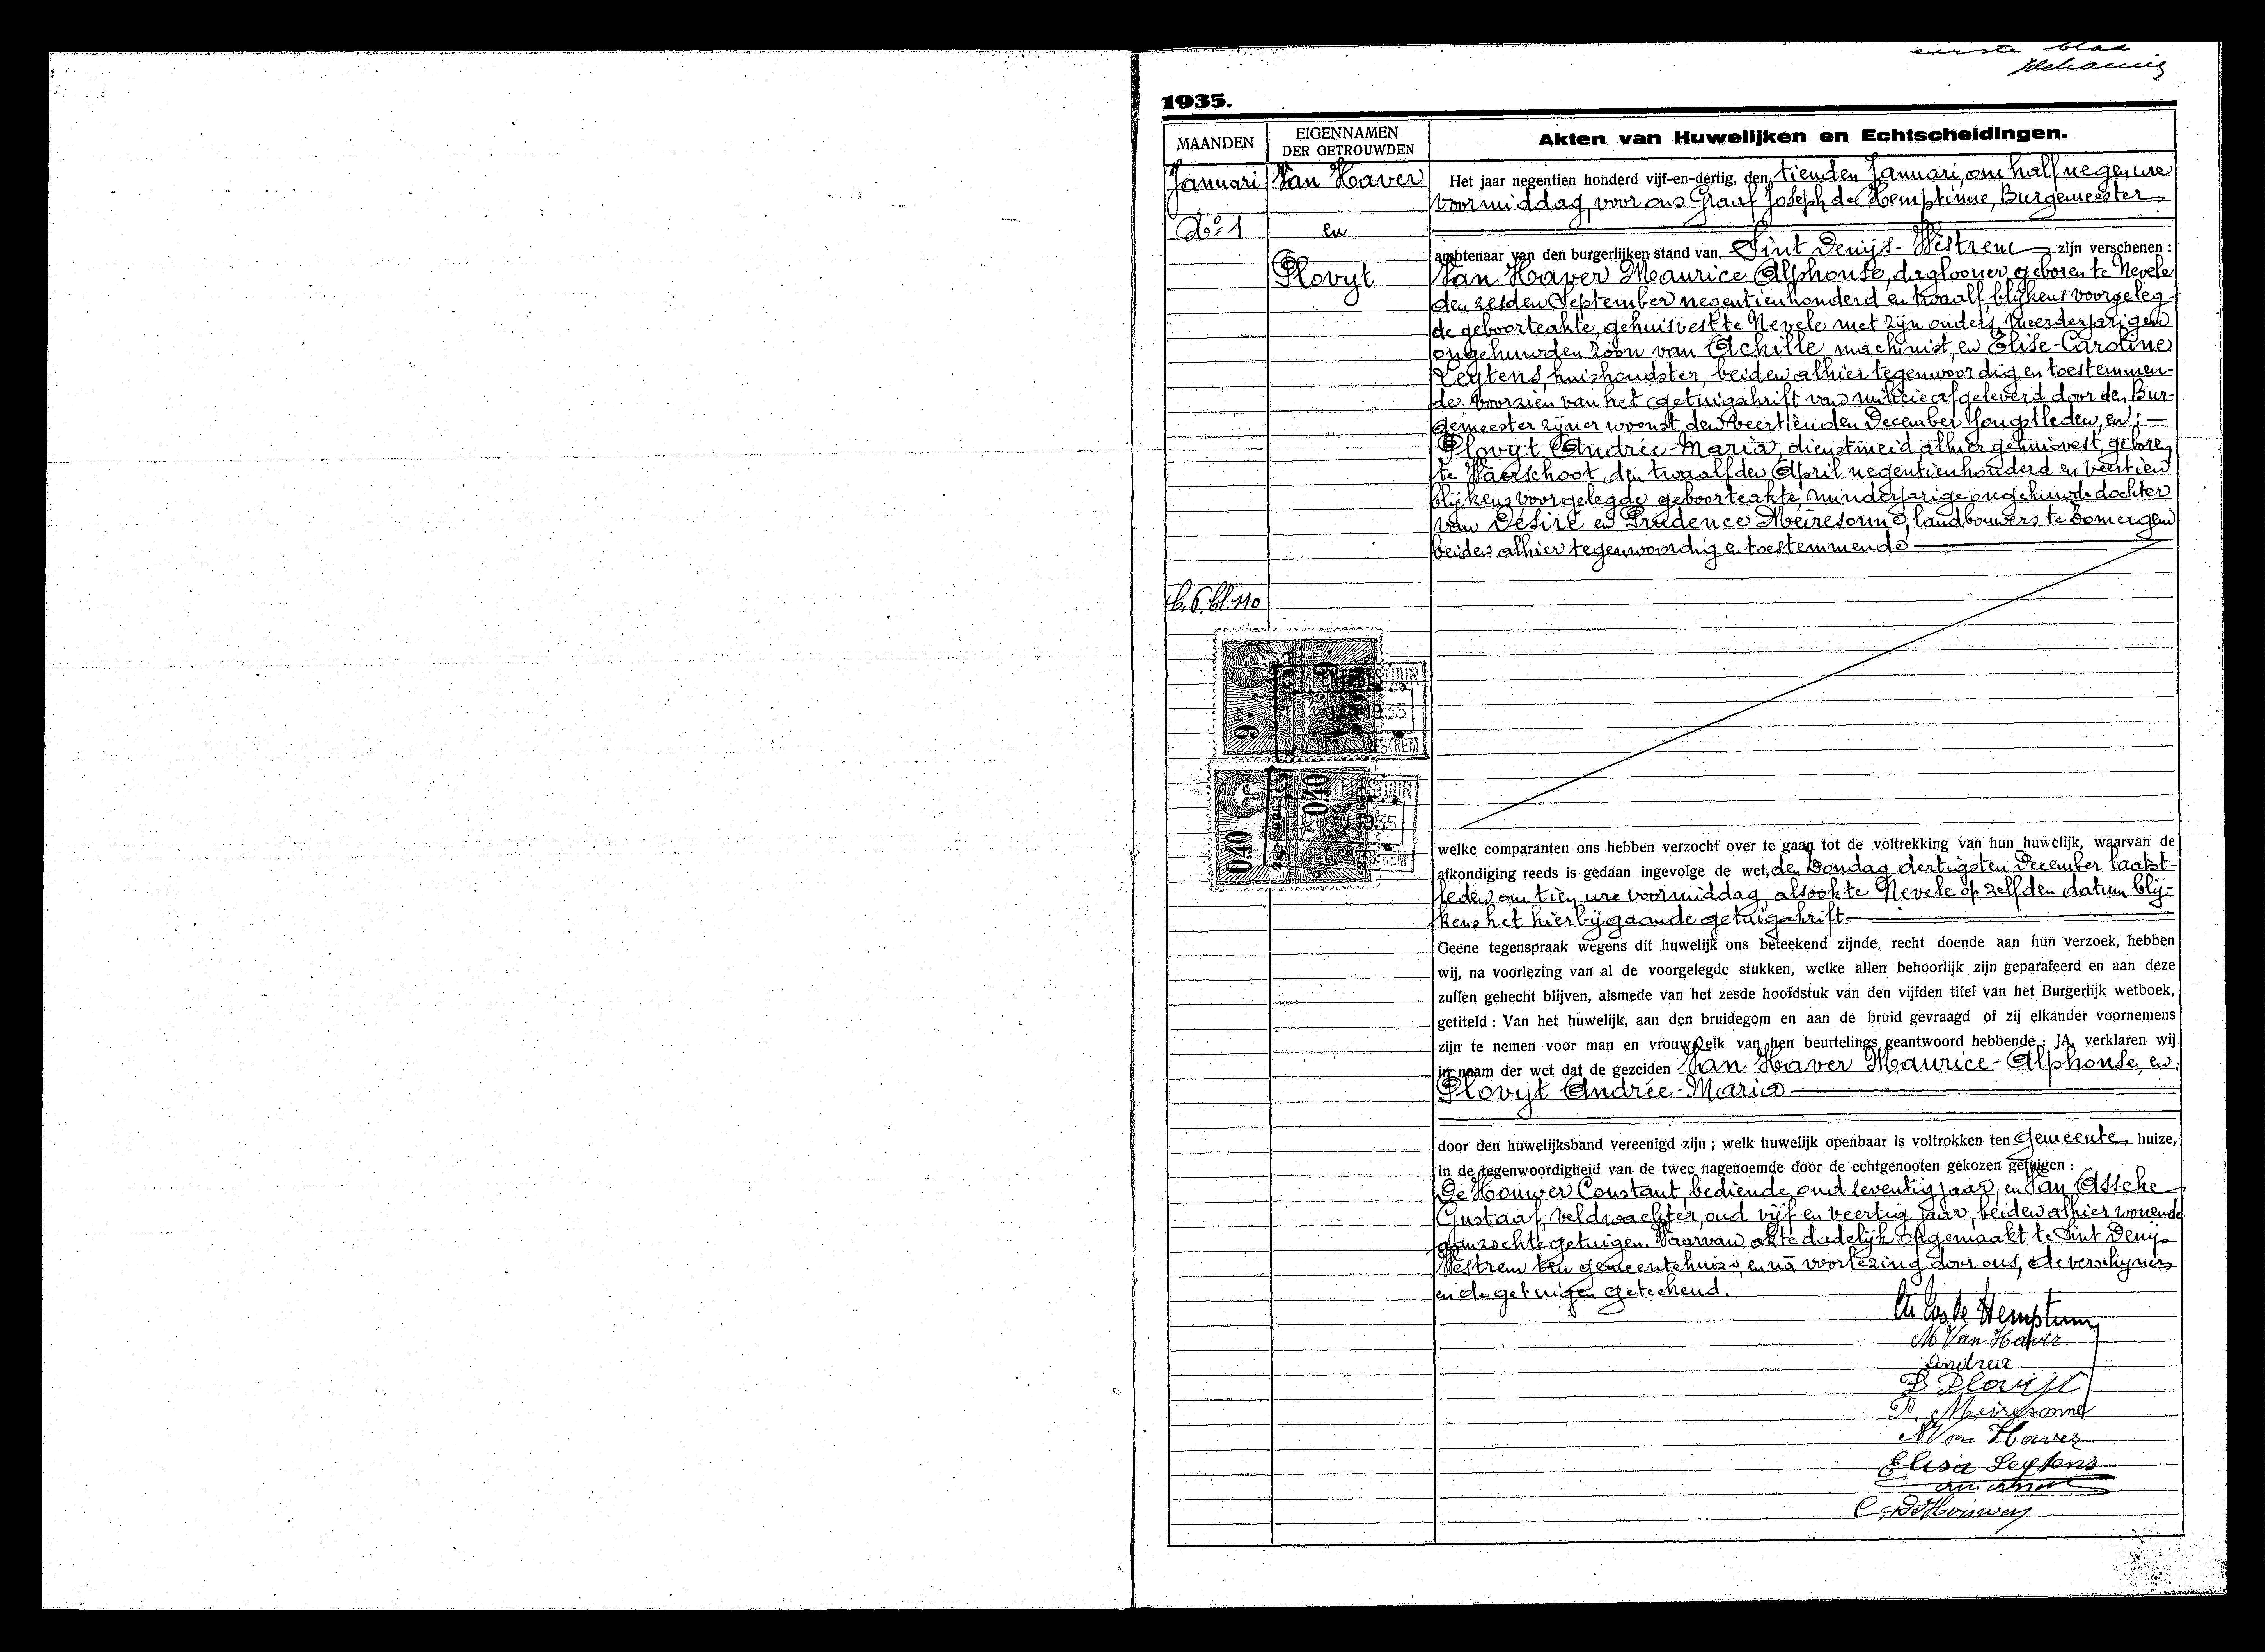 eerste blad
1935.
MAANDEN
EIGENNAMEN
DER GETROUWDEN
Akten van Huwelijken en Echtscheidingen.
Januari
Van Haver
Het jaar negentien honderd vijf-en-dertig, den tienden Januari, om half negen ure
voormiddag, voor ons Graaf Joseph de Hemptinne, Burgemeester
No 1
en
ambtenaar van den burgerlijken stand van Sint Denijs-Westrem zijn verschenen :
Plovyt
Van Haver Maurice Alphonse, daglooner, geboren te Nevele
den zesden September negentienhonderd en twaalf, blijkens voorgeleg-
de geboorteakte, gehuisvest te Nevele met zijn ouders, meerderjarigen
ongehuwden zoon van Achille, machinist, en Elise-Caroline
Leytens, huishoudster, beiden alhier tegenwoordig en toestemmen-
de, voorzien van het getuigschrift van militie afgeleverd door den Bur-
gemeester zijner woonst den veertienden December jongstleden, en :
Plovyt Andrée-Maria, dienstmeid alhier gehuisvest, geboren
te Waerschoot, den twaalfden April negentienhonderd en veertien
blijkens voorgelegde geboorteakte, minderjarige ongehuwde dochter
van Désiré en Prudence Meiresonne, landbouwers te Somergem
beiden alhier tegenwoordig en toestemmende
b. 6. bl. 110
9 Fr.
0.40
0.40
1935
welke comparanten ons hebben verzocht over te gaan tot de voltrekking van hun huwelijk, waarvan de
afkondiging reeds is gedaan ingevolge de wet, den Zondag dertigsten December laatst-
leden om tien ure voormiddag, alsook te Nevele op zelfden datum blij-
kens het hierbijgaande getuigschrift
Geene tegenspraak wegens dit huwelijk ons beteekend zijnde, recht doende aan hun verzoek, hebben
wij, na voorlezing van al de voorgelegde stukken, welke allen behoorlijk zijn geparafeerd en aan deze
zullen gehecht blijven, alsmede van het zesde hoofdstuk van den vijfden titel van het Burgerlijk wetboek,
getiteld : Van het huwelijk, aan den bruidegom en aan de bruid gevraagd of zij elkander voornemens
zijn te nemen voor man en vrouw, elk van hen beurtelings geantwoord hebbende : JA, verklaren wij
in naam der wet dat de gezeiden Van Haver Maurice-Alphonse, en
Plovyt Andrée-Maria
door den huwelijksband vereenigd zijn ; welk huwelijk openbaar is voltrokken ten Gemeente huize,
in de tegenwoordigheid van de twee nagenoemde door de echtgenooten gekozen getuigen :
De Houwer Constant, bediende, oud zeventig jaar, en Van Assche
Gustaaf, veldwachter, oud vijf en veertig jaar, beiden alhier wonende
aanzochte getuigen. Waarvan akte dadelijk opgemaakt te Sint Denijs
Westrem ten gemeentehuize, en na voorlezing door ons, de verschijners
en de getuigen geteekend.
M Van Haver
Andrea
D Plovijt
P. Meiresonne
A Van Haver
Elisa Leytens
C. De Houwer